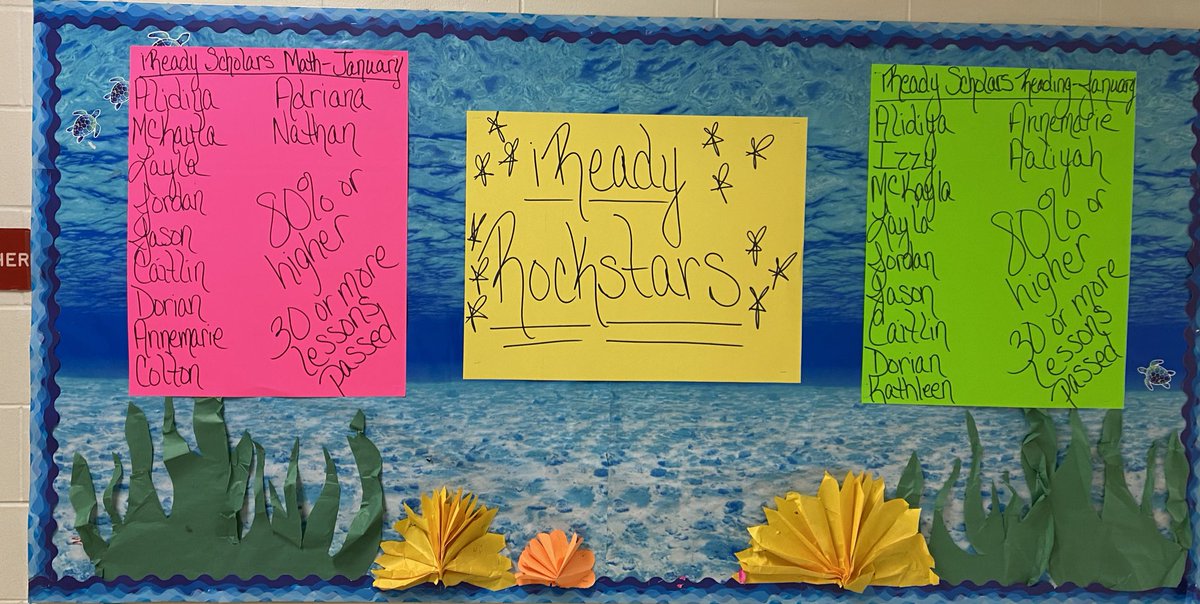 iReady Scholars Math-January
Alidiya Adriana
McKayla Nathan
Layla
Jordan
Jason
Caitlin
Dorian
Annemarie
Colton
80% or
higher
30 or more
Lessons
passed
iReady
Rockstars
iReady Scholars Reading-January
Alidiya Annemarie
Izzy Aaliyah
McKayla
Layla
Jordan
Jason
Caitlin
Dorian
Kathleen
80% or
higher
30 or more
Lessons
passed